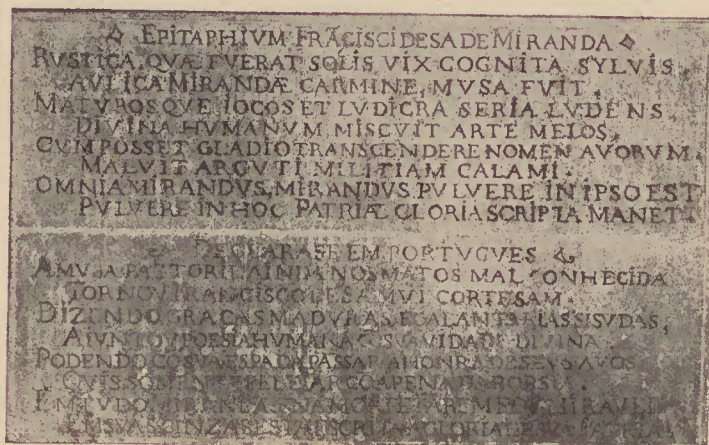 EPITAPHIVM FRÃCISCI DESA DE MIRANDA
RVSTICA, QVÆ FVERAT SOLIS VIX COGNITA SYLVIS,
AVLICA MIRANDÆ CARMINE, MVSA FVIT.
MATVROSQVE IOCOS ET LVDICRA SERIA LVDENS,
DIVINA HVMANVM MISCVIT ARTE MELOS,
CVM POSSET GLADIO TRANSCENDERE NOMEN AVORVM,
MALVIT ARGVTI MILITIAM CALAMI.
OMNIA MIRANDVS, MIRANDVS PVLVERE IN IPSO EST
PVLVERE IN HOC PATRIÆ GLORIA SCRIPTA MANET
DECLARASE EM PORTVGVES
A MVSA PASTORIL AINDA NOS MATOS MAL CONHECIDA
TORNOV FRANCISCO DESA MVI CORTESAM.
DIZENDO GRACAS MADVRAS E GALANTARIAS SISVDAS,
AIVNTOV POESIA HVMANA CÕ SVAVIDADE DIVINA
PODENDO CÕ SVA ESPADA PASSAR A HONRA DE SEVS AVOS
QVIS SOMENTE
EM TVDO
EM SVAS CINZAS ESTA ESCRITA A GLORIA DE SVA